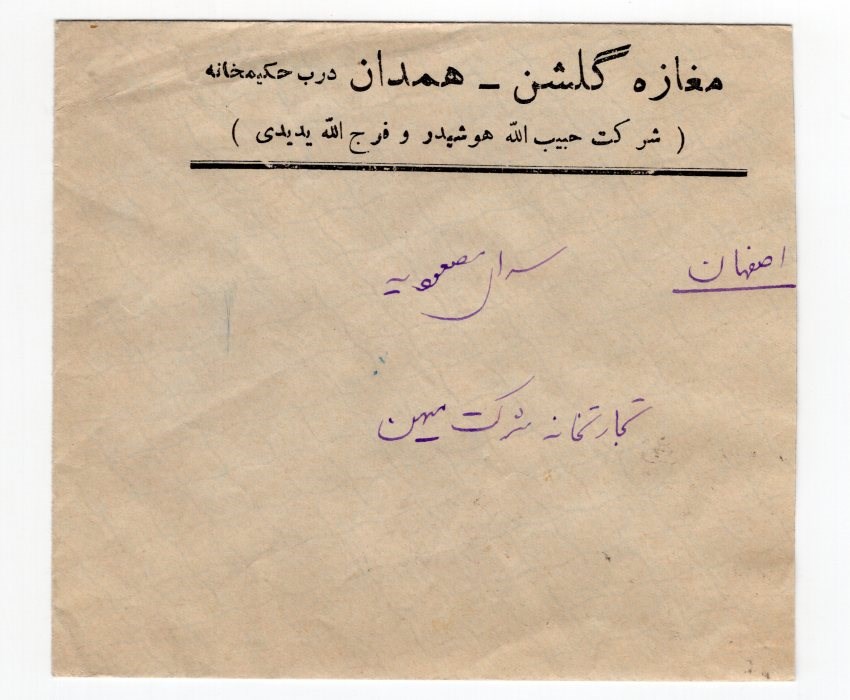 مغازه گلشن ـ همدان درب حکیمخانه
( شرکت حبیب الله هوشیدر و فرج الله یدیدی )
اصفهان سرای مسعودیه
تجارتخانه شرکت میهن